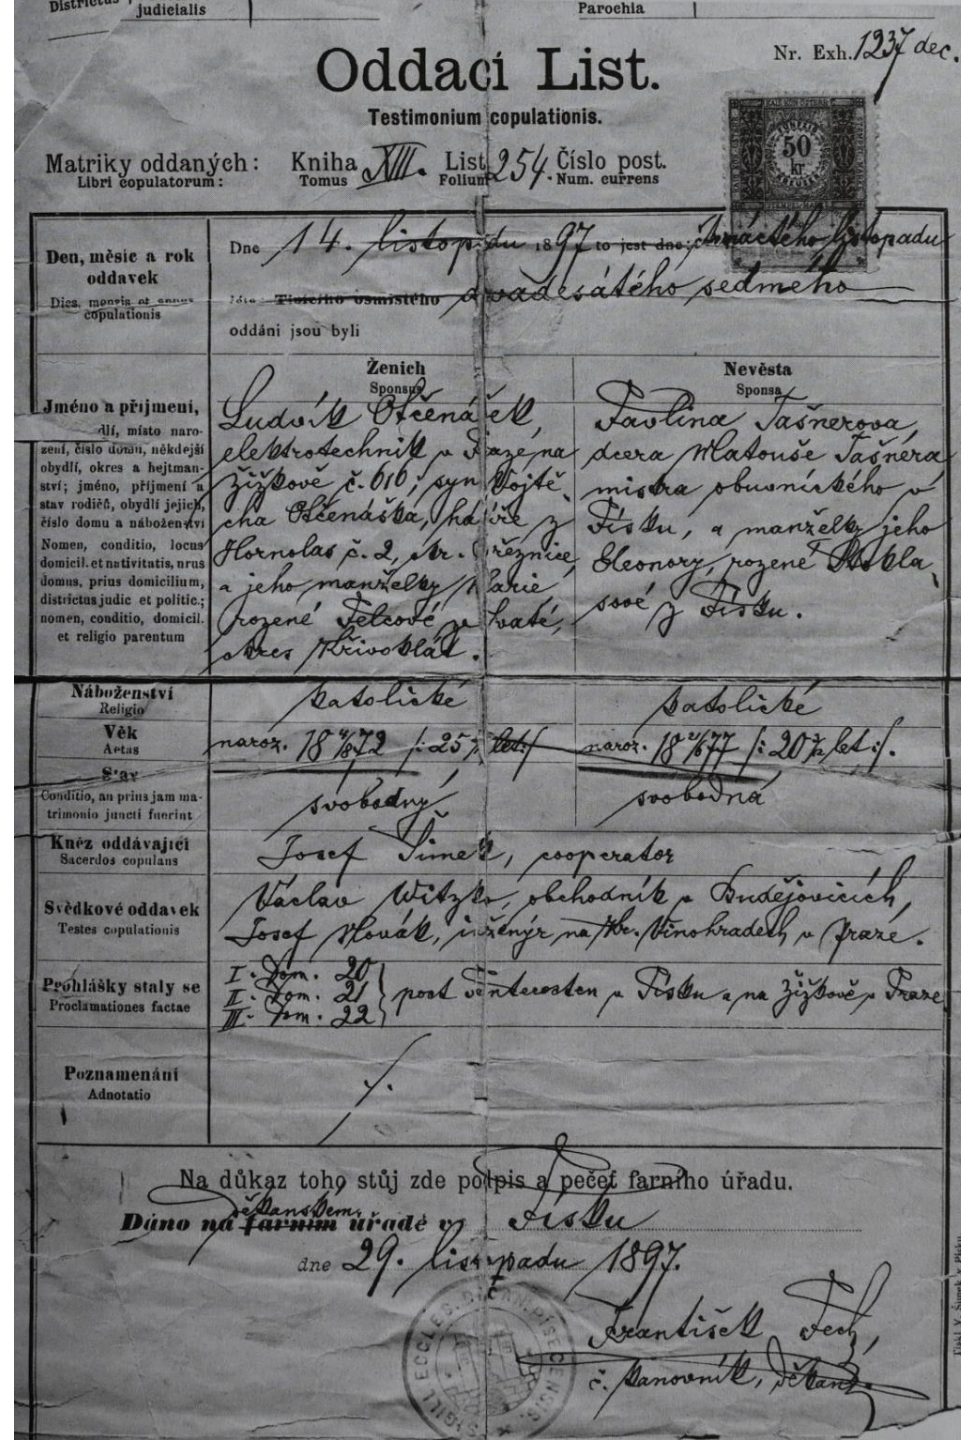 Districtus
judicialis
Parochia
Nr. Exh. 1237 dec.
Oddací List.
Testimonium copulationis.
50
kr
Matriky oddaných: Kniha XIII. List 254. Číslo post.
Libri copulatorum: Tomus Folium Num. currens
Den, měsíc a rok
oddavek
Dies, mensis et annus
copulationis
Dne 14. listopadu 1897 to jest dne: čtrnáctého listopadu
tisícího osmistého devadesátého sedmého
oddáni jsou byli
Ženich
Sponsus
Nevěsta
Sponsa
Jméno a příjmení,
dlí, místo naro-
zení, číslo domu, někdejší
obydlí, okres a hejtman-
ství; jméno, příjmení a
stav rodičů, obydlí jejich,
číslo domu a náboženství
Nomen, conditio, locus
domicil. et nativitatis, nrus
domus, prius domicilium,
districtus judic et politic.;
nomen, conditio, domicil.
et religio parentum
Ludvík Otčenášek,
elektrotechnik v Praze, na
Žižkově č. 616; syn Vojtě-
cha Otčenáška, haíře z
Hornolas č. 2, okr. Březnice
a jeho manželky Marie
rozené Felcové ze Svaté,
okres Křivoklát.
Pavlina Tašnerova,
dcera Matouše Tašnera
mistra obuvnického v
Písku, a manželky jeho
Eleonory, rozené Stokla-
sové z Písku.
Náboženství
Religio
katolické
katolické
Věk
Aetas
naroz. 18 4/8 72 /: 25 let :/
naroz. 18 21/6 77 /: 20 let :/.
Stav
Conditio, an prius jam ma-
trimonio juncti fuerint
svobodný
svobodná
Kněz oddávající
Sacerdos copulans
Josef Šimek, cooperator
Svědkové oddavek
Testes copulationis
Václav Witzko, obchodník v Budějovicích,
Josef Novák, inženýr na Kr. Vinohradech v Praze.
Prohlášky staly se
Proclamationes factae
I. Dom. 20
II. Dom. 21
III. Dom. 22
post Pentecosten v Písku a na Žižkově v Praze
Poznamenání
Adnotatio
./.
Na důkaz toho stůj zde podpis a pečeť farního úřadu.
děkanském
Dáno na farním úřadě v Písku
dne 29. listopadu 1897.
SIGILL. ECCLES. DECAN. PISECENSIS.
František
č. kanovník, děkan.